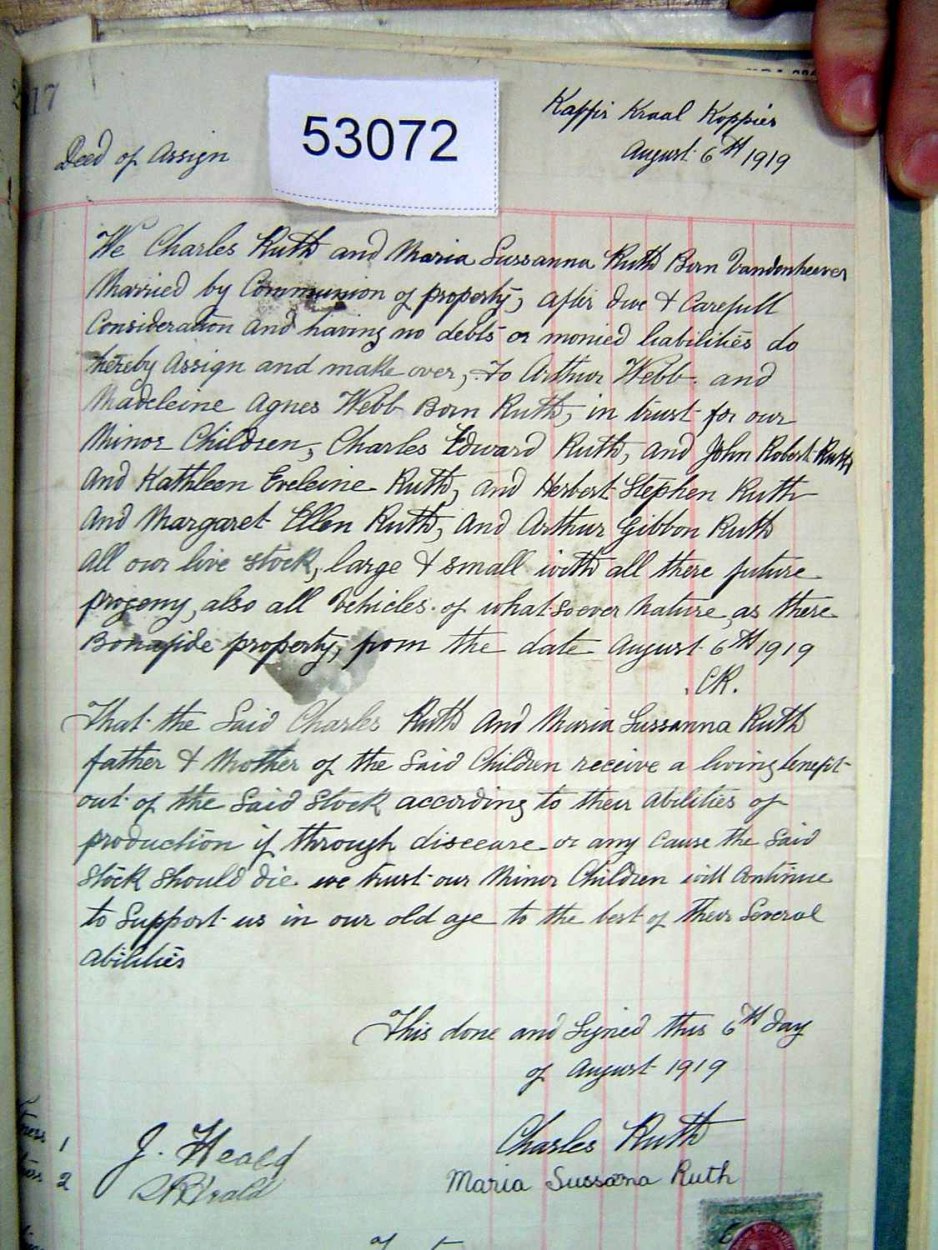 217
53072
Kaffir Kraal Koppies
Deed of Assign
August 6th 1919
We Charles Ruth and Maria Sussanna Ruth Born Vandenheever
Married by Communion of property, after due & Carefull
Consideration and having no debts or monied liabilities do
hereby Assign and make over, To Arthur Webb and
Madeleine Agnes Webb Born Ruth, in trust for our
Minor Children, Charles Edward Ruth, and John Robert Ruth
and Kathleen Eveleine Ruth, and Herbert Stephen Ruth
And Margaret Ellen Ruth, And Arthur Gibbon Ruth
All our live stock, large & small with all there future
progeny, also all Vehicles of whatsoever Nature, as there
Bonafide property, from the date August 6th 1919
C.R.
That the Said Charles Ruth And Maria Sussanna Ruth
father & Mother of the Said Children receive a living benefit
out of the Said Stock according to their Abilities of
production if through diseease or any Cause the Said
Stock Should die we trust our Minor Children will Continue
to Support us in our old age to the best of their Several
Abilities
This done and Signed this 6th Day
of August 1919
1 J. Heald
Charles Ruth
2
Maria Sussana Ruth